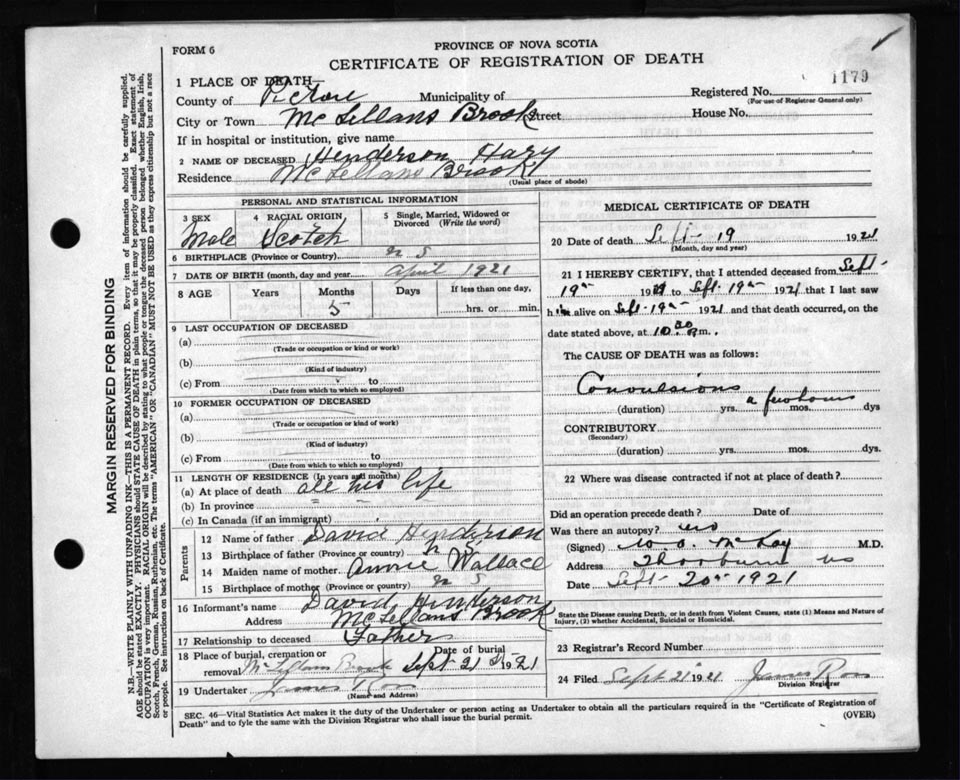 FORM 6
PROVINCE OF NOVA SCOTIA
CERTIFICATE OF REGISTRATION OF DEATH
1179
1 PLACE OF DEATH—
County of Pictou Municipality of
Registered No.
(For use of Registrar General only)
City or Town McLellans Brook Street
House No.
If in hospital or institution, give name
2 NAME OF DECEASED Henderson
Residence McLellans Brook
(Usual place of abode)
PERSONAL AND STATISTICAL INFORMATION
3 SEX Male
4 RACIAL ORIGIN Scotch
5 Single, Married, Widowed or Divorced (Write the word)
6 BIRTHPLACE (Province or Country) N S
7 DATE OF BIRTH (month, day and year) April 1921
8 AGE Years Months Days If less than one day,
5 hrs. or min.
9 LAST OCCUPATION OF DECEASED
(a)
(Trade or occupation or kind or work)
(b)
(Kind of industry)
(c) From to
(Date from which to which so employed)
10 FORMER OCCUPATION OF DECEASED
(a)
(Trade or occupation or kind of work)
(b)
(Kind of industry)
(c) From to
(Date from which to which so employed)
11 LENGTH OF RESIDENCE (In years and months)
(a) At place of death all his life
(b) In province
(c) In Canada (if an immigrant)
Parents
12 Name of father David Henderson
13 Birthplace of father (Province or country) N S
14 Maiden name of mother Annie Wallace
15 Birthplace of mother (Province or country) N S
16 Informant's name David Henderson
Address McLellans Brook
17 Relationship to deceased Father
18 Place of burial, cremation or removal McLellans Brook Date of burial Sept 21st 1921
19 Undertaker James Ross
(Name and Address)
MEDICAL CERTIFICATE OF DEATH
20 Date of death Sept- 19 1921
(Month, day and year)
21 I HEREBY CERTIFY, that I attended deceased from Sept-
19th 1921 to Sept. 19th 1921 that I last saw
him alive on Sept. 19th 1921 and that death occurred, on the
date stated above, at 10.30 m.
The CAUSE OF DEATH was as follows:
Convulsions
a few hours
(duration) yrs. mos. dys
CONTRIBUTORY
(Secondary)
(duration) yrs. mos. dys.
22 Where was disease contracted if not at place of death?
Did an operation precede death? Date of
Was there an autopsy? no
(Signed) McKay M.D.
Address Thorburn NS
Date Sept- 20th 1921
State the Disease causing Death, or in death from Violent Causes, state (1) Means and Nature of
Injury, (2) whether Accidental, Suicidal or Homicidal.
23 Registrar's Record Number
24 Filed Sept 21 1921 James Ross
Division Registrar
SEC. 46—Vital Statistics Act makes it the duty of the Undertaker or person acting as Undertaker to obtain all the particulars required in the "Certificate of Registration of
Death" and to fyle the same with the Division Registrar who shall issue the burial permit.
(OVER)
MARGIN RESERVED FOR BINDING
N.B.—WRITE PLAINLY WITH UNFADING INK—THIS IS A PERMANENT RECORD. Every item of information should be carefully supplied.
AGE should be stated EXACTLY. PHYSICIANS should STATE CAUSE OF DEATH in plain terms, so that it may be properly classified. Exact statement of
OCCUPATION is very important. RACIAL ORIGIN will be described by stating to what people or tongue the deceased person belonged whether English, Irish,
Scotch, French, German, Russian, Ruthenian, etc. The terms "AMERICAN" OR "CANADIAN" MUST NOT BE USED as they express citizenship but not a race
or people. See instructions on back of Certificate.